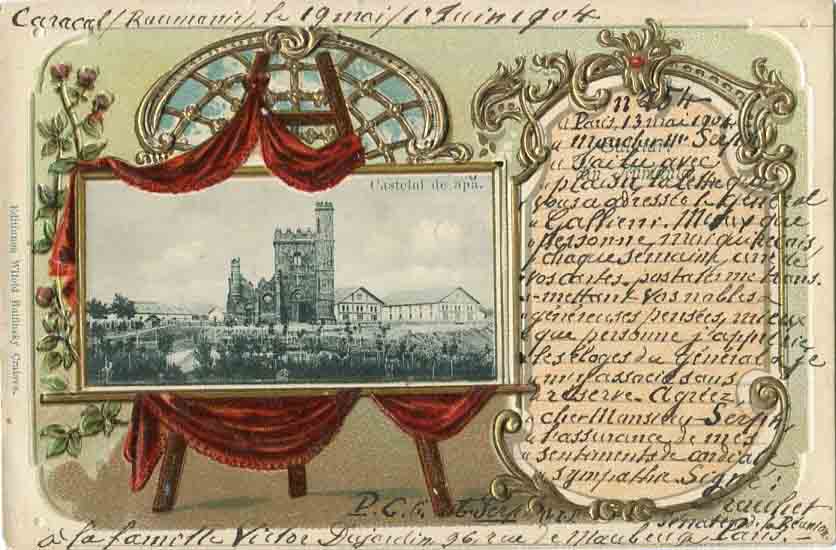 Caracal (Roumanie), le 19 mai/1r Juin 1904
Castelul de apă.
Editiunea Witold Rulinsky, Craiova.
n° 254
« Paris, 13 mai 1904
« mon cher Mr Serpin
« J'ai lu avec
« plaisir la lettre que
vous a adressée le Général
« Gallieni. Mieux que
« personne, moi qui reçois,
« chaque semaine, une de
vos cartes postales me trans-
« mettant vos nobles &
« généreuses pensées, mieux
« que personne j'apprécie
« les éloges du Général & je
« m'y associe sans
« réserve. Agréez
« cher Monsieur Serpin,
« l'assurance de mes
« sentiments de cordiale
« sympathie. Signé :
sénateur de la Réunion
à la famille Victor Dujardin, 96 rue de Maubeuge, Paris. -